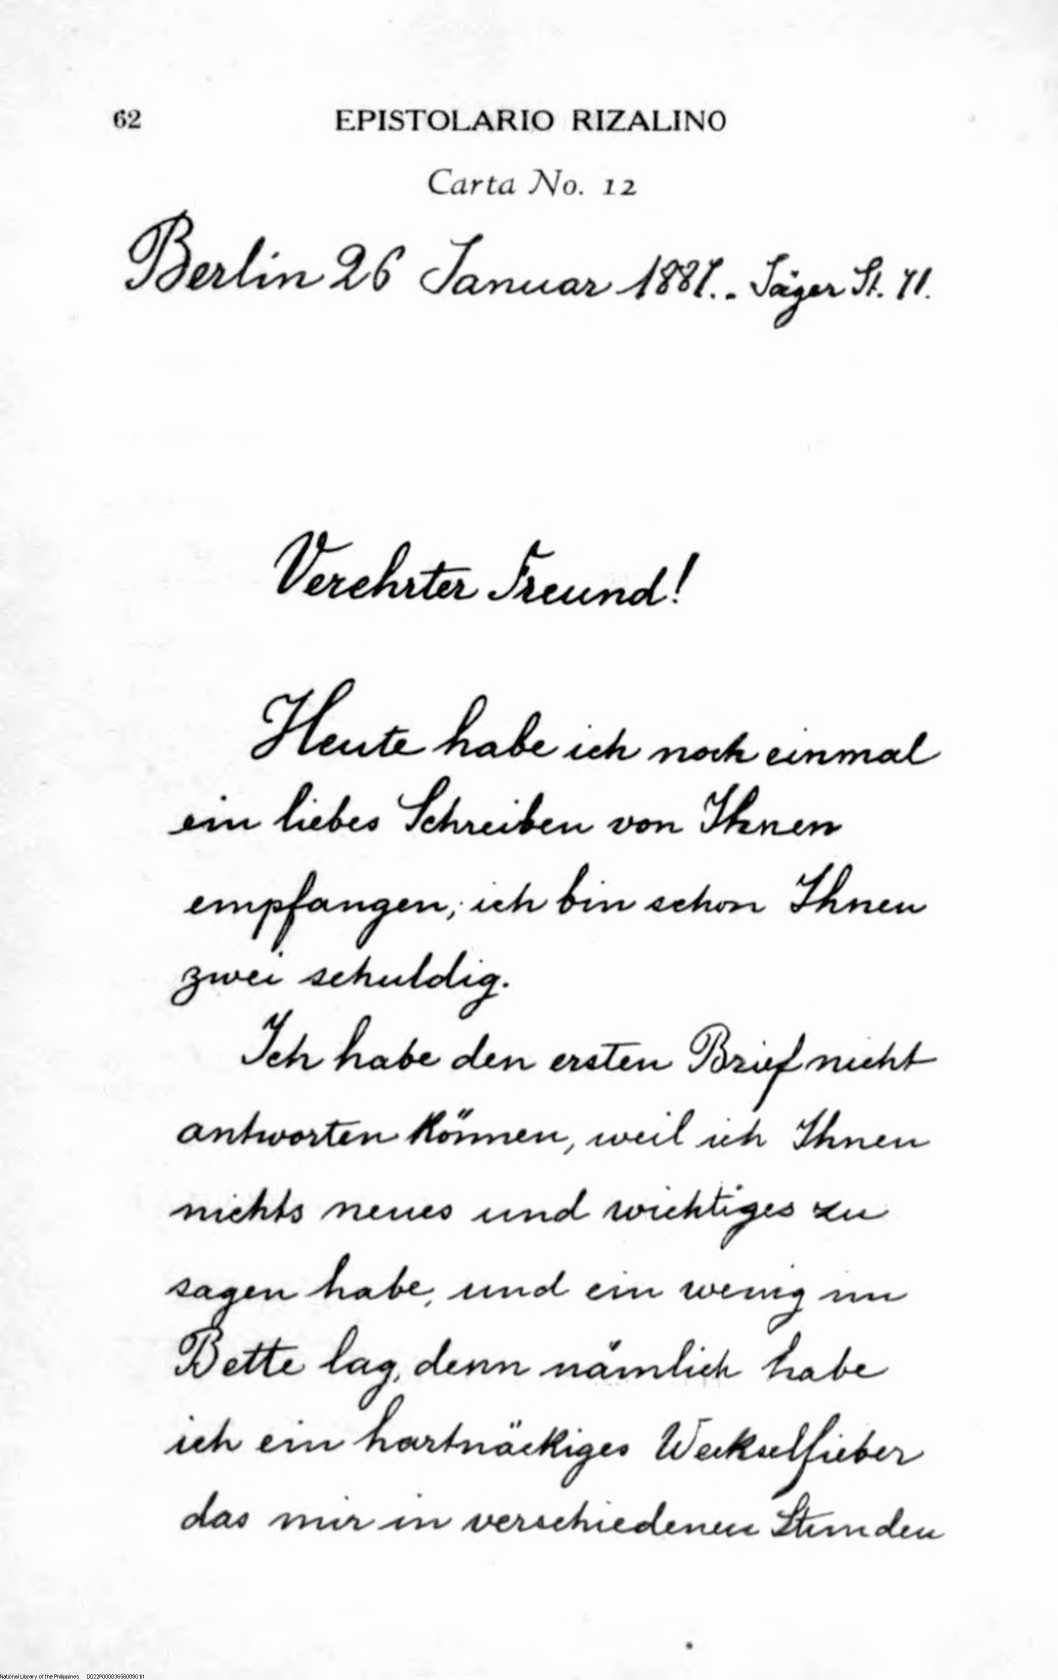 62 EPISTOLARIO RIZALINO
Carta No. 12
Berlin 26 Januar 1887.- Jäger St. 71.
Verehrter Freund!
Heute habe ich noch einmal
ein liebes Schreiben von Ihnen
empfangen; ich bin schon Ihnen
zwei schuldig.
Ich habe den ersten Brief nicht
antworten können, weil ich Ihnen
nichts neues und wichtiges zu
sagen habe, und ein wenig im
Bette lag, denn nämlich habe
ich ein hartnäckiges Weckselfieber
das mir in verschiedenen Stunden
National Library of the Philippines